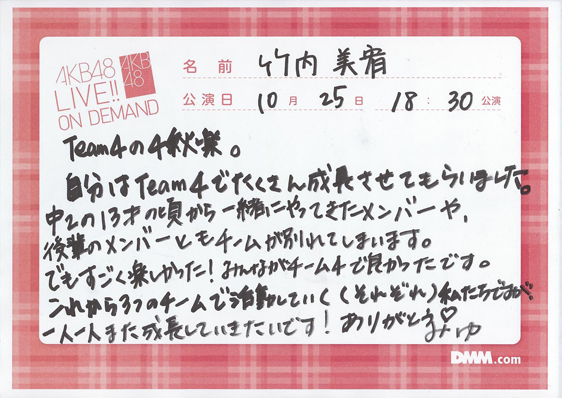 AKB48
LIVE!!
ON DEMAND
AKB
48
名前 竹内美宥
公演日 10月25日 18:30公演
Team4の千秋楽。
自分はTeam4でたくさん成長させてもらいました。
中2の13才の頃から一緒にやってきたメンバーや、
後輩のメンバーともチームが別れてしまいます。
でもすごく楽しかった!みんながチーム4で良かったです。
これから3つのチームで活動していく(それぞれ)私たちですが、
一人一人また成長していきたいです!ありがとう♡
みゆ
DMM.com